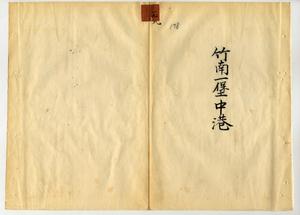 竹南一堡中港
178